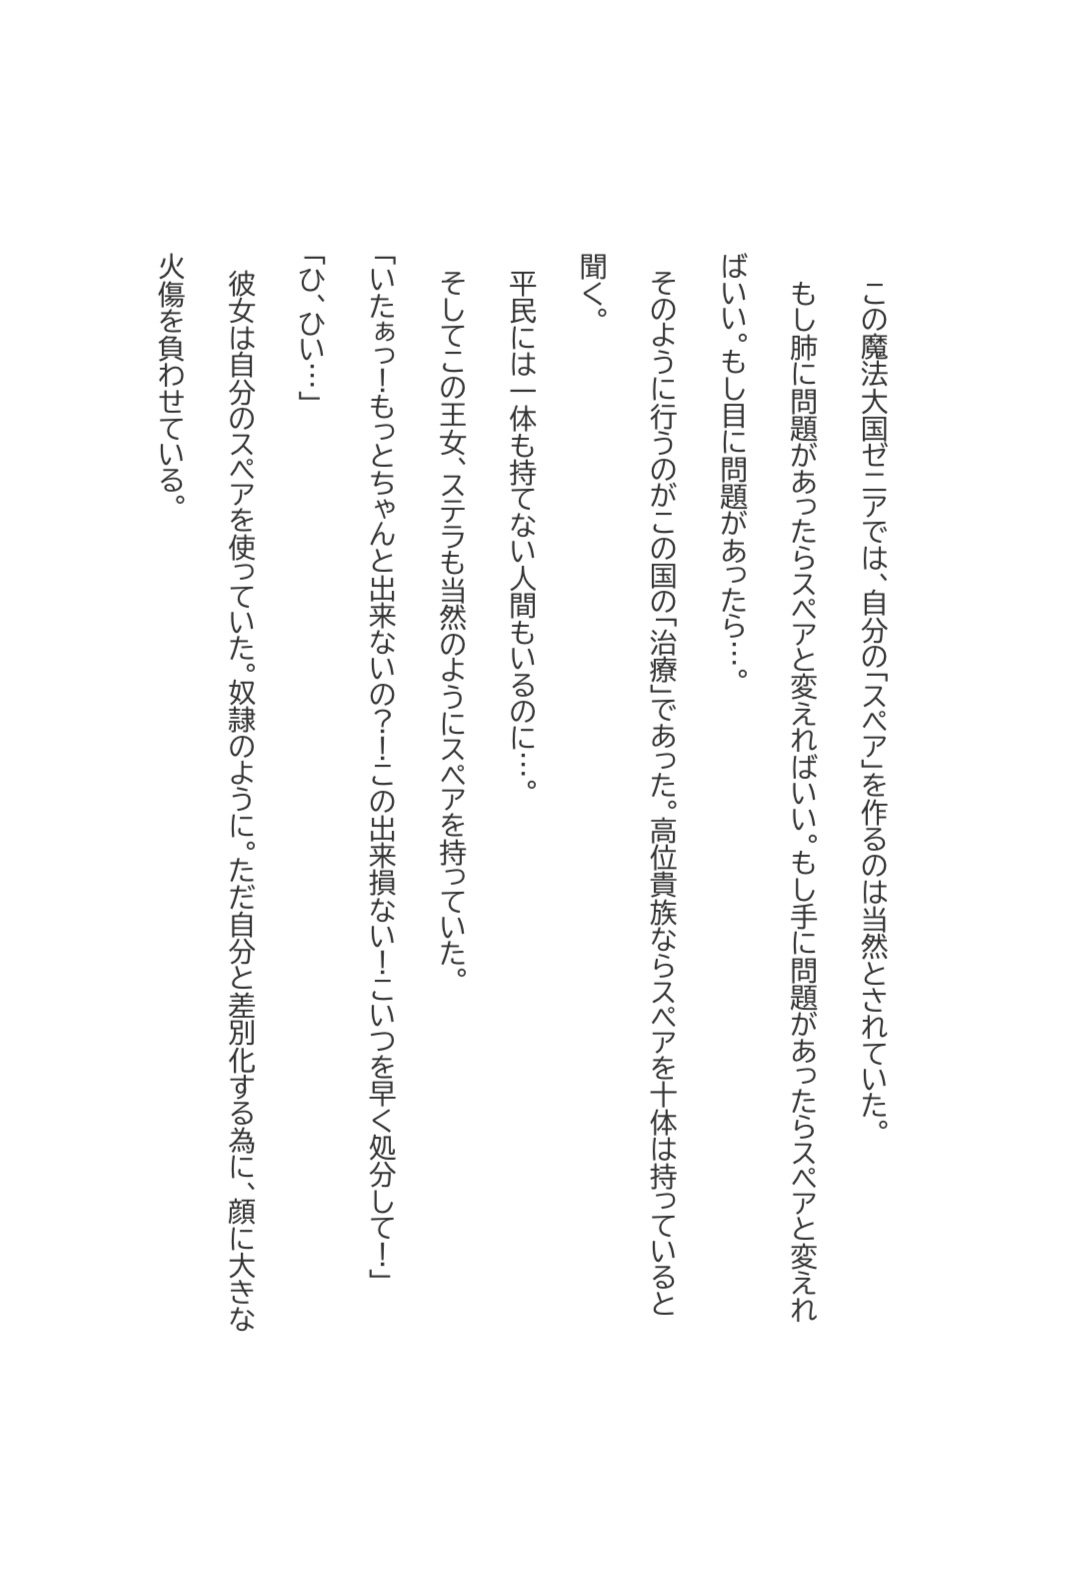 この魔法大国ゼニアでは、自分の「スペア」を作るのは当然とされていた。
もし肺に問題があったらスペアと変えればいい。もし手に問題があったらスペアと変えれ
ばいい。もし目に問題があったら…。
そのように行うのがこの国の「治療」であった。高位貴族ならスペアを十体は持っていると
聞く。
平民には一体も持てない人間もいるのに…。
そしてこの王女、ステラも当然のようにスペアを持っていた。
「いたぁっ！もっとちゃんと出来ないの？！この出来損ない！こいつを早く処分して！」
「ひ、ひい…」
彼女は自分のスペアを使っていた。奴隷のように。ただ自分と差別化する為に、顔に大きな
火傷を負わせている。